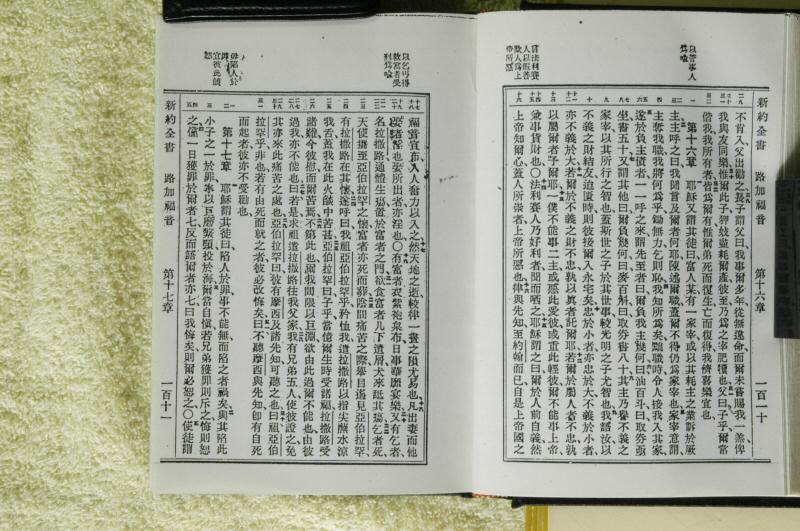 以管事人
爲喻
責法利賽
人以假善
欺人爲上
帝所惡
新約全書 路加福音 第十六章 一百一十
不肯入父出勸之長子謂父曰我事爾多年從無違命而爾未嘗賜我一羔俾
我與友同樂惟爾此子狎妓盡耗爾產彼至乃爲之宰肥犢也父曰子乎爾常
偕我我所有者皆爲爾有惟爾弟死而復生亡而復得我儕喜樂宜也
第十六章 耶穌又謂其徒曰富人某有一家宰或以其耗主之業訴於厥
主主呼之曰我聞言及爾者何耶陳述爾職蓋爾不得仍爲家宰也家宰意謂
主奪我職我將何爲乎鋤無力乞則恥我知所爲矣職時令人接我入其家
遂於負主債者一一呼之來謂先至者曰爾負我主幾何曰油百斗曰取券亟
坐書五十又謂其他曰爾負幾何曰麥百斛曰取券書八十其主乃譽不義之
家宰以其所行之智也蓋斯世之子於其世事較光明之子尤智也我語汝以
不義之財結友迨匱時則彼接爾入永宅矣忠於小者亦忠於大不義於小者
亦不義於大若爾於不義之財不忠孰以眞者託爾耶若爾於屬人者不忠孰
以屬爾者予爾耶一僕不能事二主或惡此愛彼或重此輕彼爾不能事上帝
兼事貨財也〇法利賽人乃好利者聞而哂之耶穌謂之曰爾於人前自義然
上帝知爾心蓋人所崇者上帝所惡也律與先知至約翰而已自是上帝國之
以乞丐得
救富者受
刑爲喻
毋陷人於
罪
宜彼此饒
恕
福音宣而人人奮力以入之然天地之逝較律一畫之隕尤易也凡出妻而他
娶者淫也娶所出者亦淫也〇有富者衣紫袍枲布日事華膴宴樂又有乞者
名拉撒路遍體生瘍置於富者之門欲食富者几下遺屑犬來舐其瘍乞者死
天使攜至亞伯拉罕之懷富者亦死而葬陰間痛苦之際舉目遙見亞伯拉罕
有拉撒路在其懷遂呼曰我祖亞伯拉罕乎矜恤我遣拉撒路以指尖蘸水涼
我舌蓋我在此火燄中苦甚亞伯拉罕曰子乎當憶爾生時受諸福拉撒路受
諸難今彼慰而爾苦焉不第此也爾我間限以巨淵欲由此過爾不能也由彼
過我亦不能也曰若是求祖遣拉撒路往我父家我有兄弟五人使彼證之免
其亦來此痛苦之處也亞伯拉罕曰彼有摩西及諸先知可聽之也曰祖亞伯
拉罕乎非也若有由死而就之者彼必悔矣曰不聽摩西與先知即有自死
而起者彼亦不受勸也
第十七章 耶穌謂其徒曰陷人於罪事不能無而陷之者禍矣與其陷此
小子之一於罪寧以巨磨繫頸投於海爾當自愼若兄弟獲罪則斥之悔則恕
之儻一日獲罪於爾者七反而語爾者亦七曰我悔矣則爾必恕之〇使徒謂
新約全書 路加福音 第十七章 一百十一